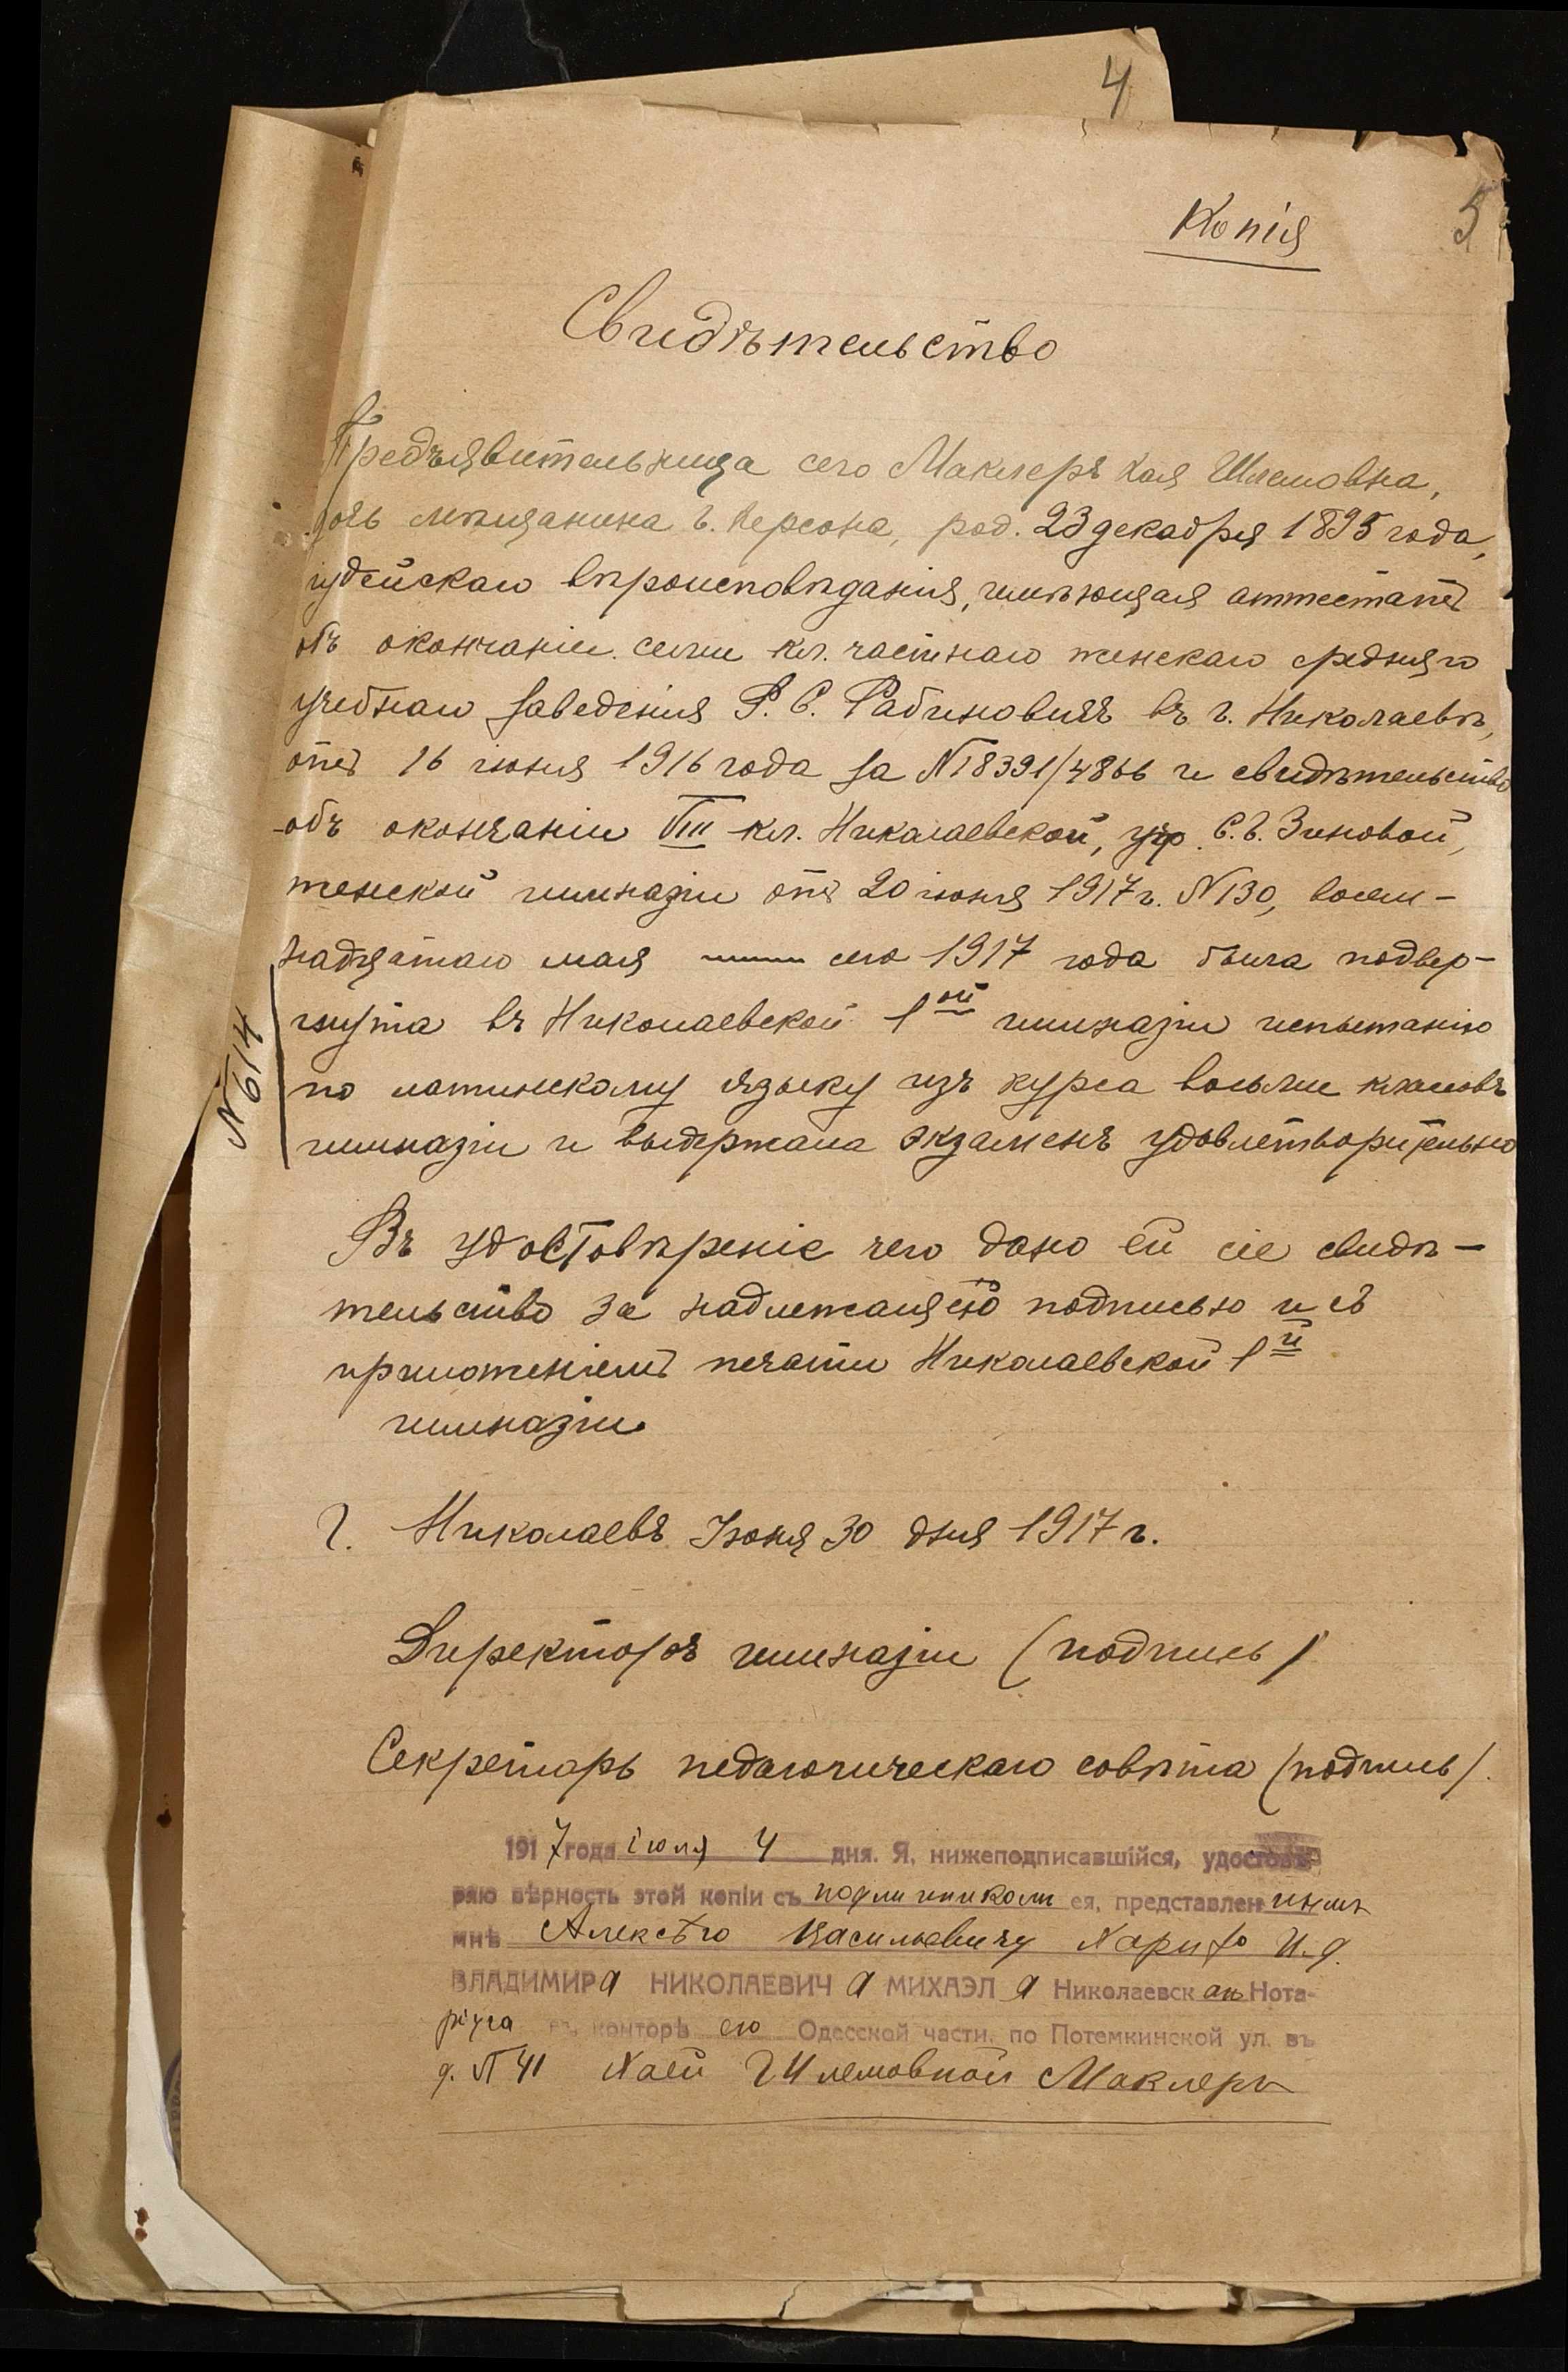 4
Копія
5
Свидѣтельство
Предъявительница сего Маклеръ Хая Шлемовна,
дочь мѣщанина г. Херсона, род. 23 декабря 1895 года,
іудейскаго вѣроисповѣданія, имѣющая аттестатъ
объ окончаніи семи кл. частнаго женскаго средняго
учебнаго заведенія Р. С. Рабиновичъ въ г. Николаевѣ,
отъ 16 іюня 1916 года за № 18391/4866 и свидѣтельство
объ окончаніи VIII кл. Николаевской, учр. С. Г. Зиновой,
женской гимназіи отъ 20 іюня 1917 г. № 130, восем-
надцатаго мая сего 1917 года была подвер-
гнута въ Николаевской 1ой гимназіи испытанію
по латинскому языку изъ курса восьми классовъ
гимназіи и выдержала экзаменъ удовлетворительно
№ 614
Въ удостовѣреніе чего дано ей сіе свидѣ-
тельство за надлежащею подписью и съ
приложеніемъ печати Николаевской 1й
гимназіи
Г. Николаевъ Іюня 30 дня 1917 г.
Директоръ гимназіи (подпись)
Секретарь педагогическаго совѣта (подпись).
1917 года іюля 4 дня. Я, нижеподписавшійся, удостовѣ-
ряю вѣрность этой копіи съ подлинникомъ ея, представленнымъ
мнѣ Алексѣю Васильевичу И. д.
ВЛАДИМИРа НИКОЛАЕВИЧа МИХАЭЛа Николаевскаго Нота-
ріуса въ конторѣ его Одесской части, по Потемкинской ул. въ
д. № 41 Хаей Шлемовной Маклеръ